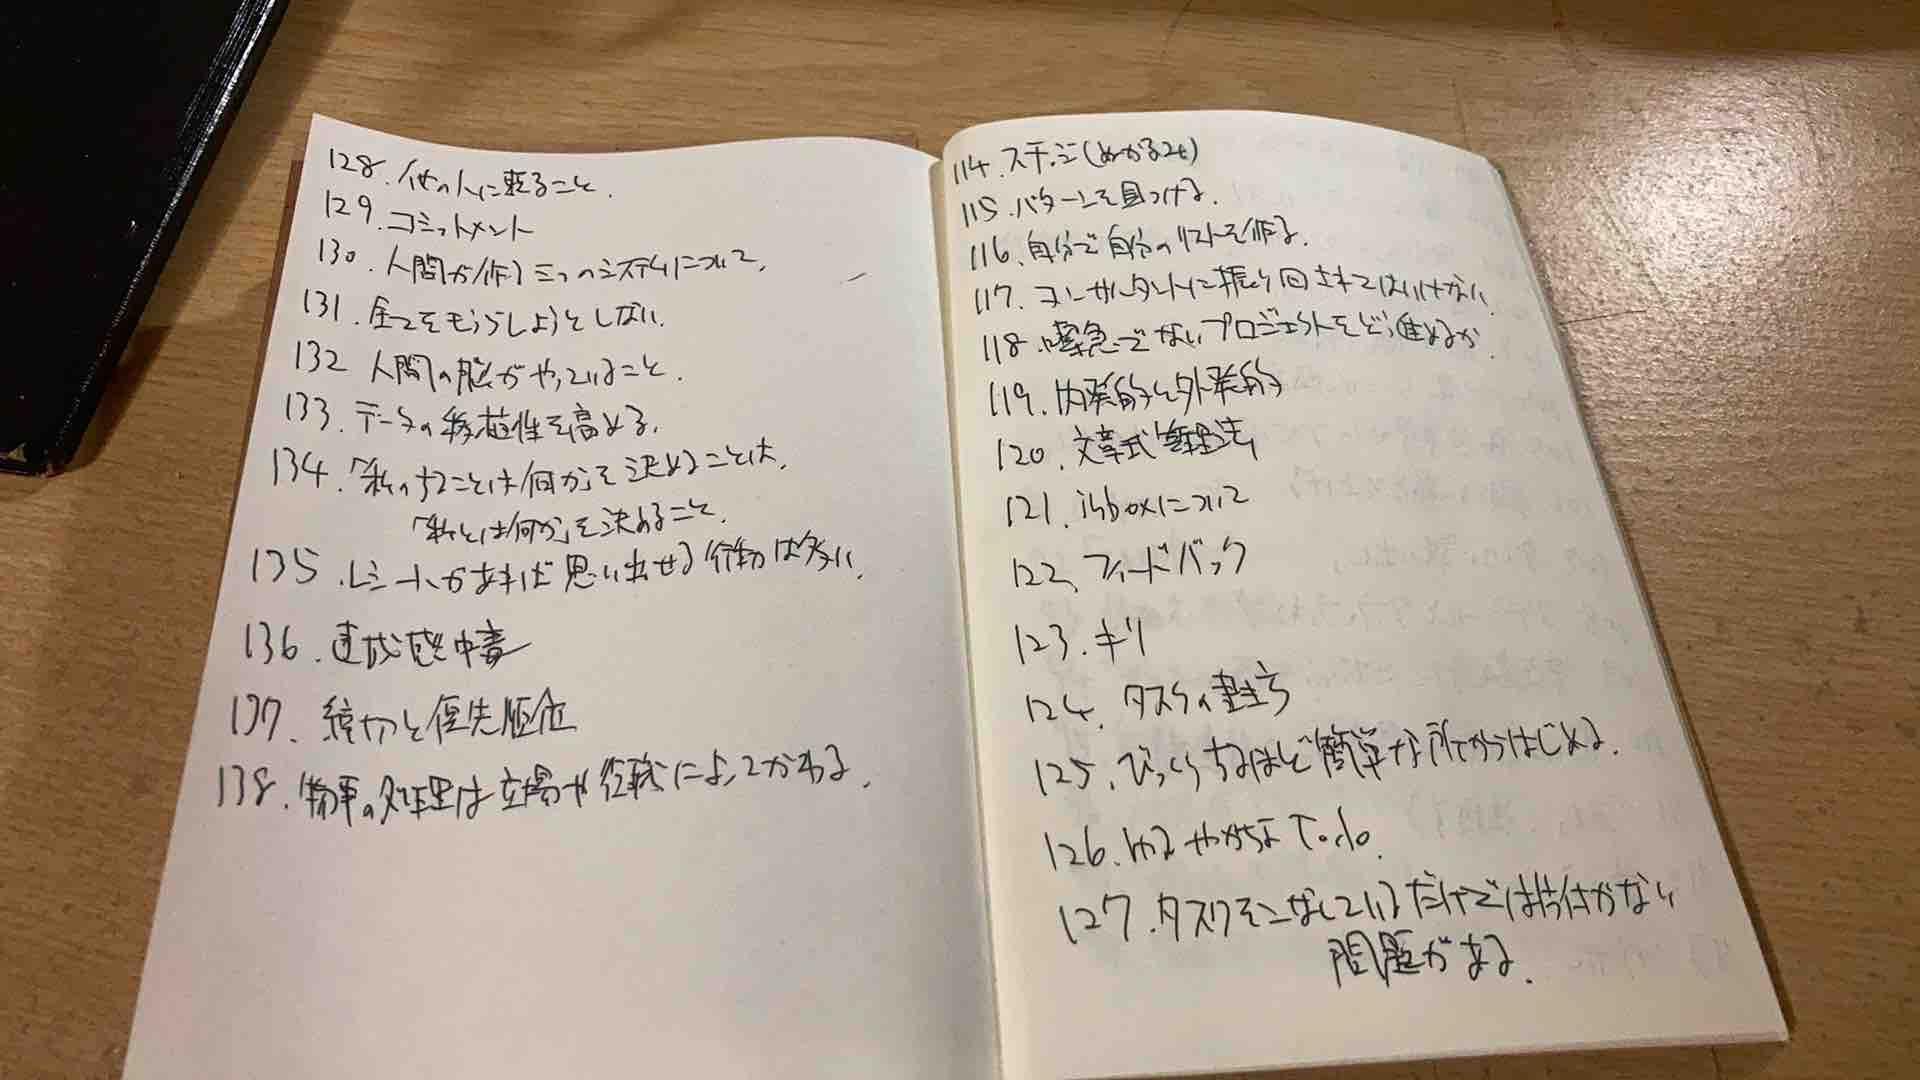 128. 他の人に頼ること.
129. コミットメント
130. 人間が作る三つのシステムについて.
131. 全てをもうらしようとしない.
132 人間の脳がやっていること.
133. データの移植性を高める.
134.「私のすることは何か」を決めることは.
「私とは何か」を決めること.
135. レシートがあれば思い出せる行動は多い.
136. 達成感中毒
137. 締切と優先順位
138. 物事の処理は立場や役職によってかわる.
114. ステージ(
115. パターンを見つける.
116. 自分で自分のリストを作る.
117. コンサルタントに振り回されてはいけない.
118. 緊急でないプロジェクトをどう進めるか.
119. 内発的と外発的
120. 文章式管理法
121. inboxについて
122. フィードバック
123. キリ
124. タスクの書き方
125. びっくりするほど簡単な所からはじめる.
126. ゆるやかな Todo.
127. タスクをこなしているだけでは片付かない
問題がある.